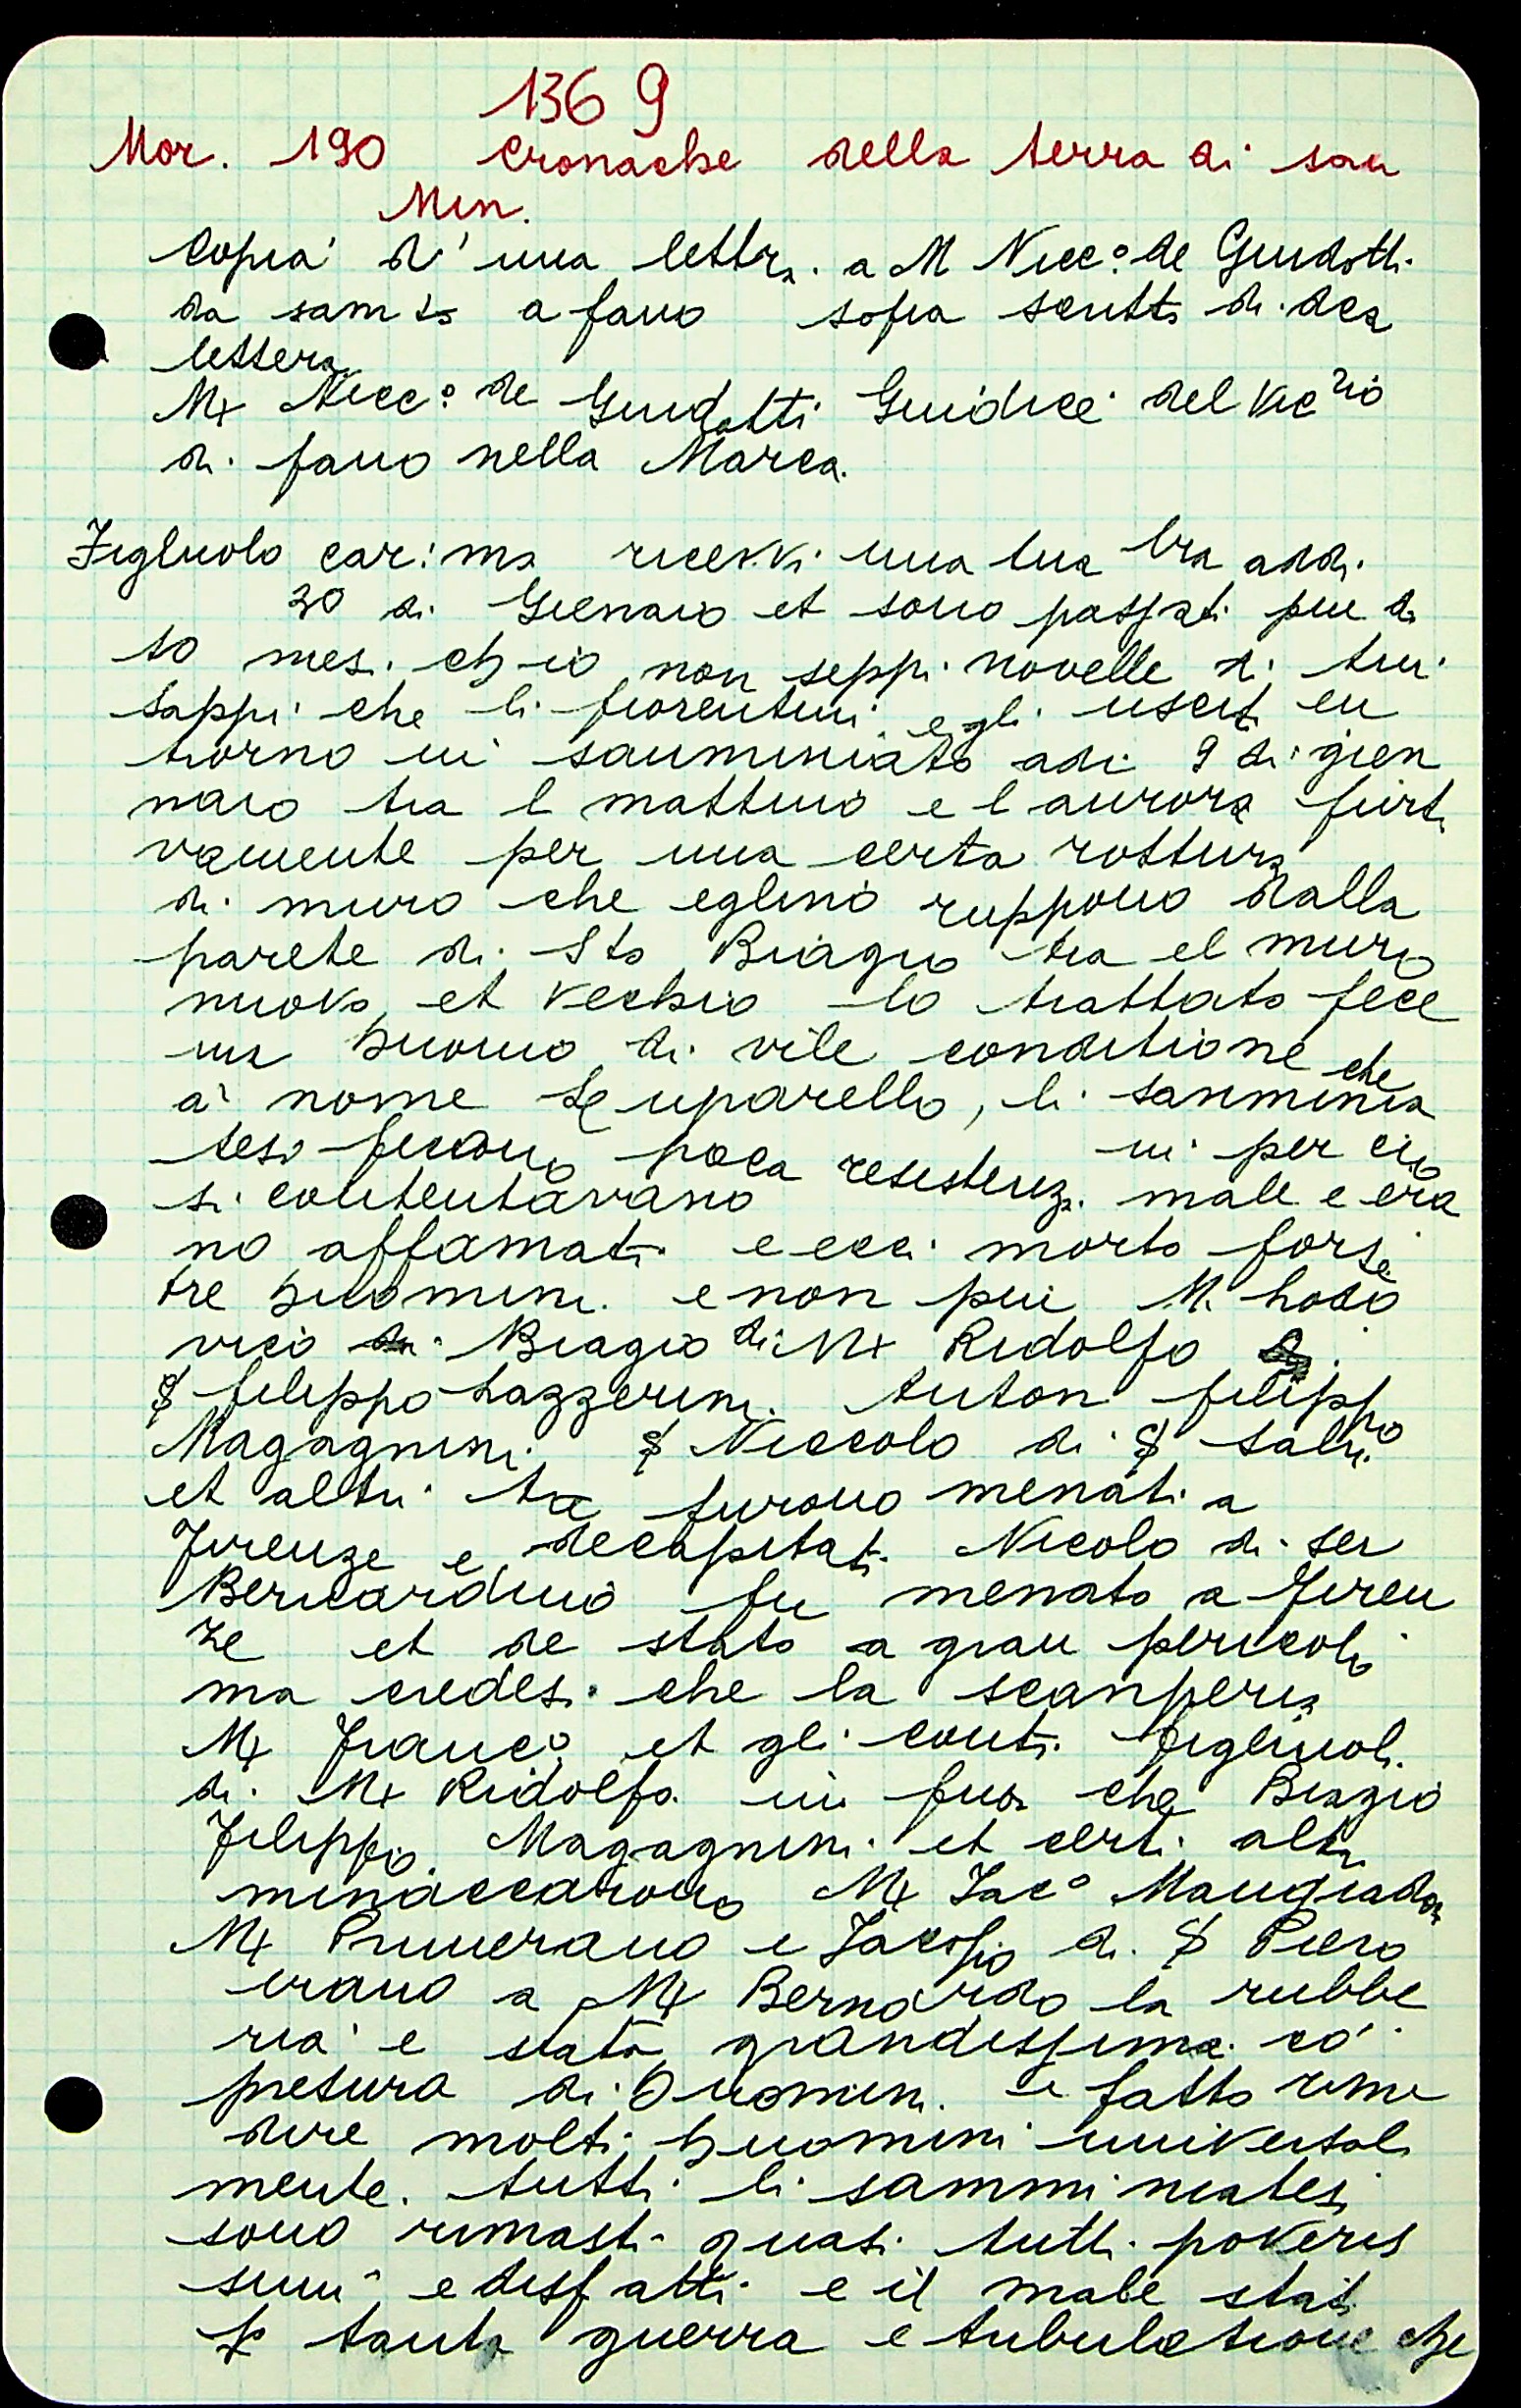 1369
Mor. 190 Cronache della terra di san
Min.
Copia d'una lettra. a M Nicc.o de Guidotti
da samto a fano sopra scritta di dca
lettera
Mx Nicc.o de Guidotti Guidice del Vicrio
di fano nella Marca.
Figliuolo car:mo ricevvi una tua lra addi
30 di Giennaio et sono passati piu di
10 mesi ch-io non seppi novelle di tui
sappi che li fiorentini e gli usciti en
trorno in sanminiato adi 9 di gien
naio tra l mattino e l aurora furti
vamente per una certa rottura
di muro che eglino ruppono dalla
parete di Sto Biagio tra el muro
nuovo et vechio lo trattato fece
un huomo di vile conditione che
a' nome Luparello, li sanminia
tesi feciono poca resistenza. ivi per cio
si contentavano male e era
no affamati e ecci morto forse
tre huomini e non piu M. Lodo
vico Biagio di Mx Ridolfo
$ filippo Lazzerini. Anton filippo
Magagnini $ Niccolo di $ Salvi
et altri furono menati a
Firenze e decapitati Nicolo di ser
Bernardino fu menato a Firen
ze et de stato a gran pericolo
ma credesi che la scanperia
Mx Franc.o et gli conti figliuoli
di Mx Ridolfo in fuor che Biagio
Filippo Magagnini et certi altri
minacciarono Mx Iac.o Mangiador
Mx Primerano e Iacopo di $ Piero
erano a Mx Bernardo la rubbe
ria e stata grandissima co
presura di huomini e fatto rime
dire molti huomini universal
mente. tutti li samminiatesi
sono rimasti quasi tutti poveris
simi e disfatti e il male stati
p tanta guerra e tribulatione che